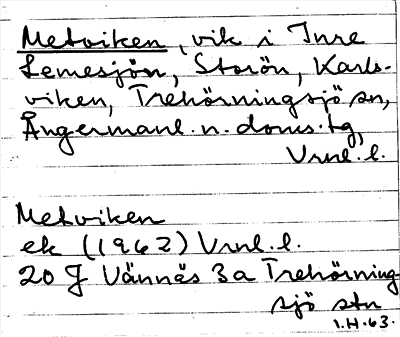 Metviken, vik i Inre
Lemesjön, Storön, Karls-
viken, Trehörningsjö sn,
Ångermanl. n. doms. tg,
Vrnl. l.
Metviken
ek (1962) Vrnl. l.
20 J Vännäs 3a Trehörning-
sjö stn
1.H.63.